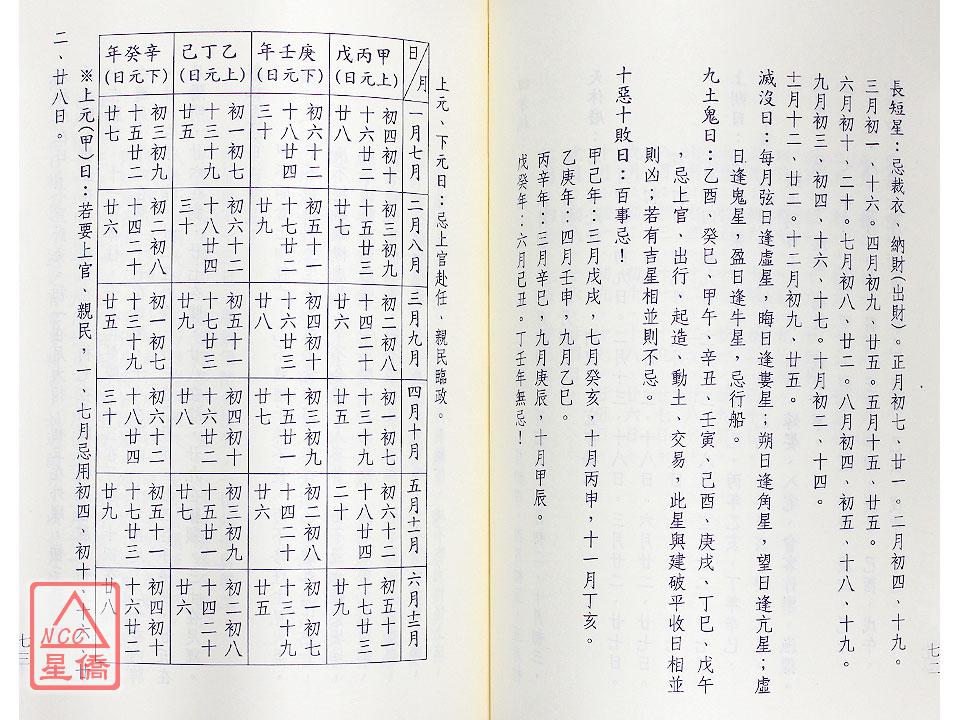 長短星：忌裁衣、納財（出財）。正月初七、廿一。二月初四、十九。
三月初一、十六。四月初九、廿五。五月十五、廿五。
六月初十、二十。七月初八、廿二。八月初四、初五、十八、十九。
九月初三、初四、十六、十七。十月初二、十四。
十一月十二、廿二。十二月初九、廿五。
滅沒日：每月弦日逢虛星，晦日逢婁星；朔日逢角星，望日逢亢星；虛
日逢鬼星，盈日逢牛星，忌行船。
九土鬼日：乙酉、癸巳、甲午、辛丑、壬寅、己酉、庚戌、丁巳、戊午
，忌上官、出行、起造、動土、交易，此星與建破平收日相並
則凶；若有吉星相並則不忌。
十惡十敗日：百事忌！
甲己年：三月戊戌，七月癸亥，十月丙申，十一月丁亥。
乙庚年：四月壬申，九月乙巳。
丙辛年：三月辛巳，九月庚辰，十月甲辰。
戊癸年：六月己丑。丁壬年無忌！
七二
上元、下元日：忌上官赴任、親民臨政。
日／月
一月七月
二月八月
三月九月
四月十月
五月十一月
六月十二月
甲丙戊
上元（日）
初四初十
十六廿二
廿八
初三初九
十五廿三
廿七
初二初八
十四二十
廿六
初一初七
十三十九
廿五
初六十二
十八廿四
二十
初五十一
十七廿三
廿九
庚壬年
下元（日）
初六十二
十八廿四
三十
初五十一
十七廿二
廿九
初四初十
十六廿三
廿八
初三初九
十五廿一
廿七
初二初八
十四二十
廿六
初一初七
十三十九
廿五
乙丁己
上元（日）
初一初七
十三十九
廿五
初六十二
十八廿四
三十
初五十一
十七廿三
廿九
初四初十
十六廿二
廿八
初三初九
十五廿一
廿七
初二初八
十四二十
廿六
辛癸年
下元（日）
初三初九
十五廿二
廿七
初二初八
十四二十
廿六
初一初七
十三十九
廿五
初六十二
十八廿四
三十
初五十一
十七廿三
廿九
初四初十
十六廿二
廿八
※上元（甲）日：若要上官、親民，一、七月忌用初四、初十、十六、廿
二、廿八日。
NCC
星僑